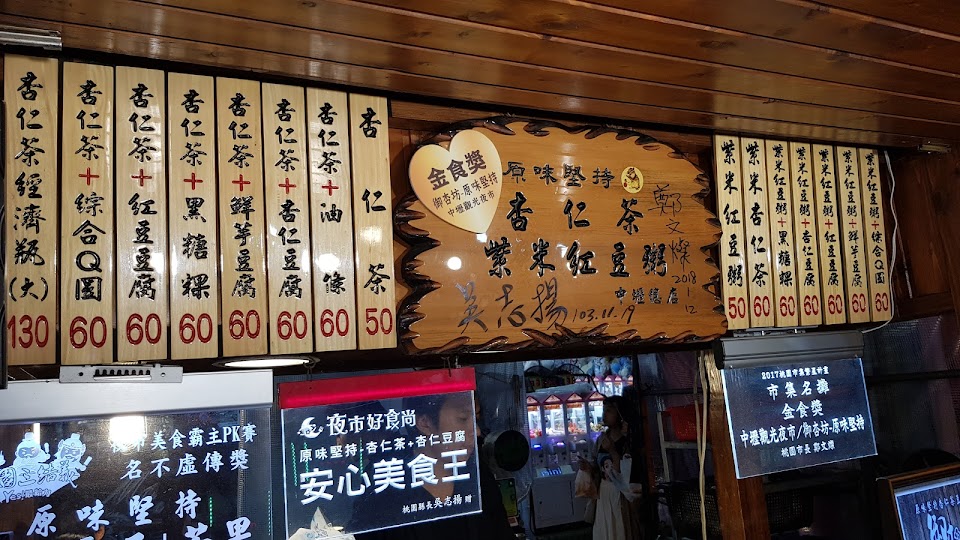 杏仁茶經濟瓶(大)
130
杏仁茶+綜合Q圓
60
杏仁茶+紅豆豆腐
60
杏仁茶+黑糖粿
60
杏仁茶+鮮芋豆腐
60
杏仁茶+杏仁豆腐
60
杏仁茶+油條
60
杏仁茶
50
金食獎
御杏坊-原味堅持
中壢觀光夜市
原味堅持
杏仁茶
紫米紅豆粥
中壢總店
鄭文燦
2018
1
12
吳志揚
103.11.19
紫米紅豆粥
50
紫米杏仁茶
60
紫米紅豆粥+黑糖粿
60
紫米紅豆粥+杏仁豆腐
60
紫米紅豆粥+紅豆豆腐
60
紫米紅豆粥+鮮芋豆腐
60
紫米紅豆粥+綜合Q圓
60
美食霸主PK賽
名不虛傳獎
原味堅持
夜市好食尚
原味堅持-杏仁茶·杏仁豆腐
安心美食王
桃園縣長吳志揚 贈
2017桃園市集智慧星計畫
市集名攤
金食獎
中壢觀光夜市/御杏坊-原味堅持
桃園市長 鄭文燦